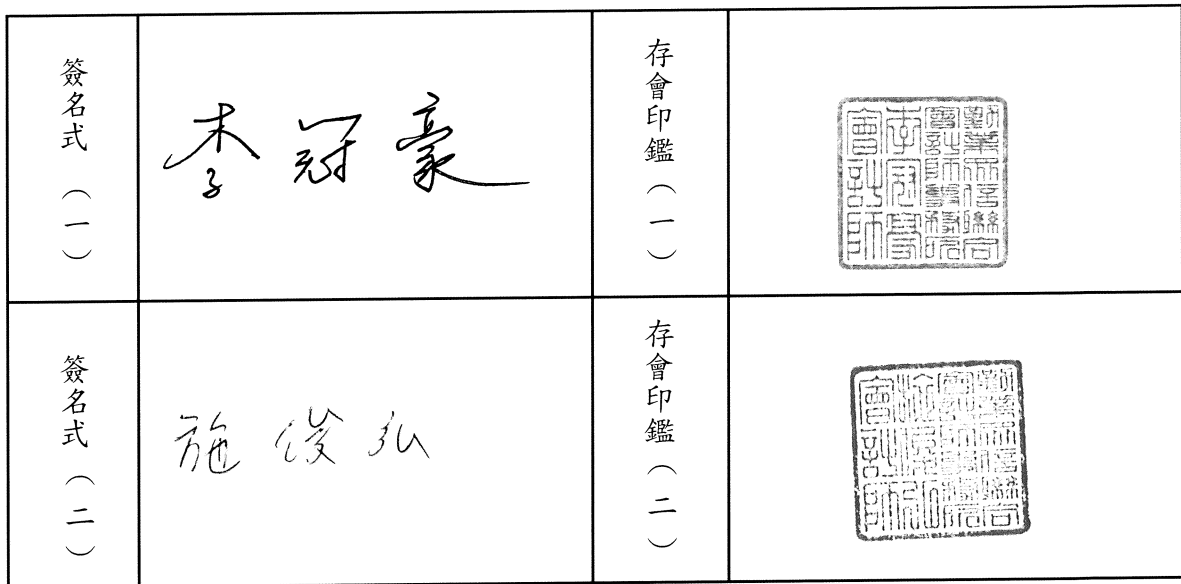 簽名式（一）
李冠豪
存會印鑑（一）
勤業眾信聯合
會計師事務所
李冠豪
會計師
簽名式（二）
施俊弘
存會印鑑（二）
勤業眾信聯合
會計師事務所
施俊弘
會計師